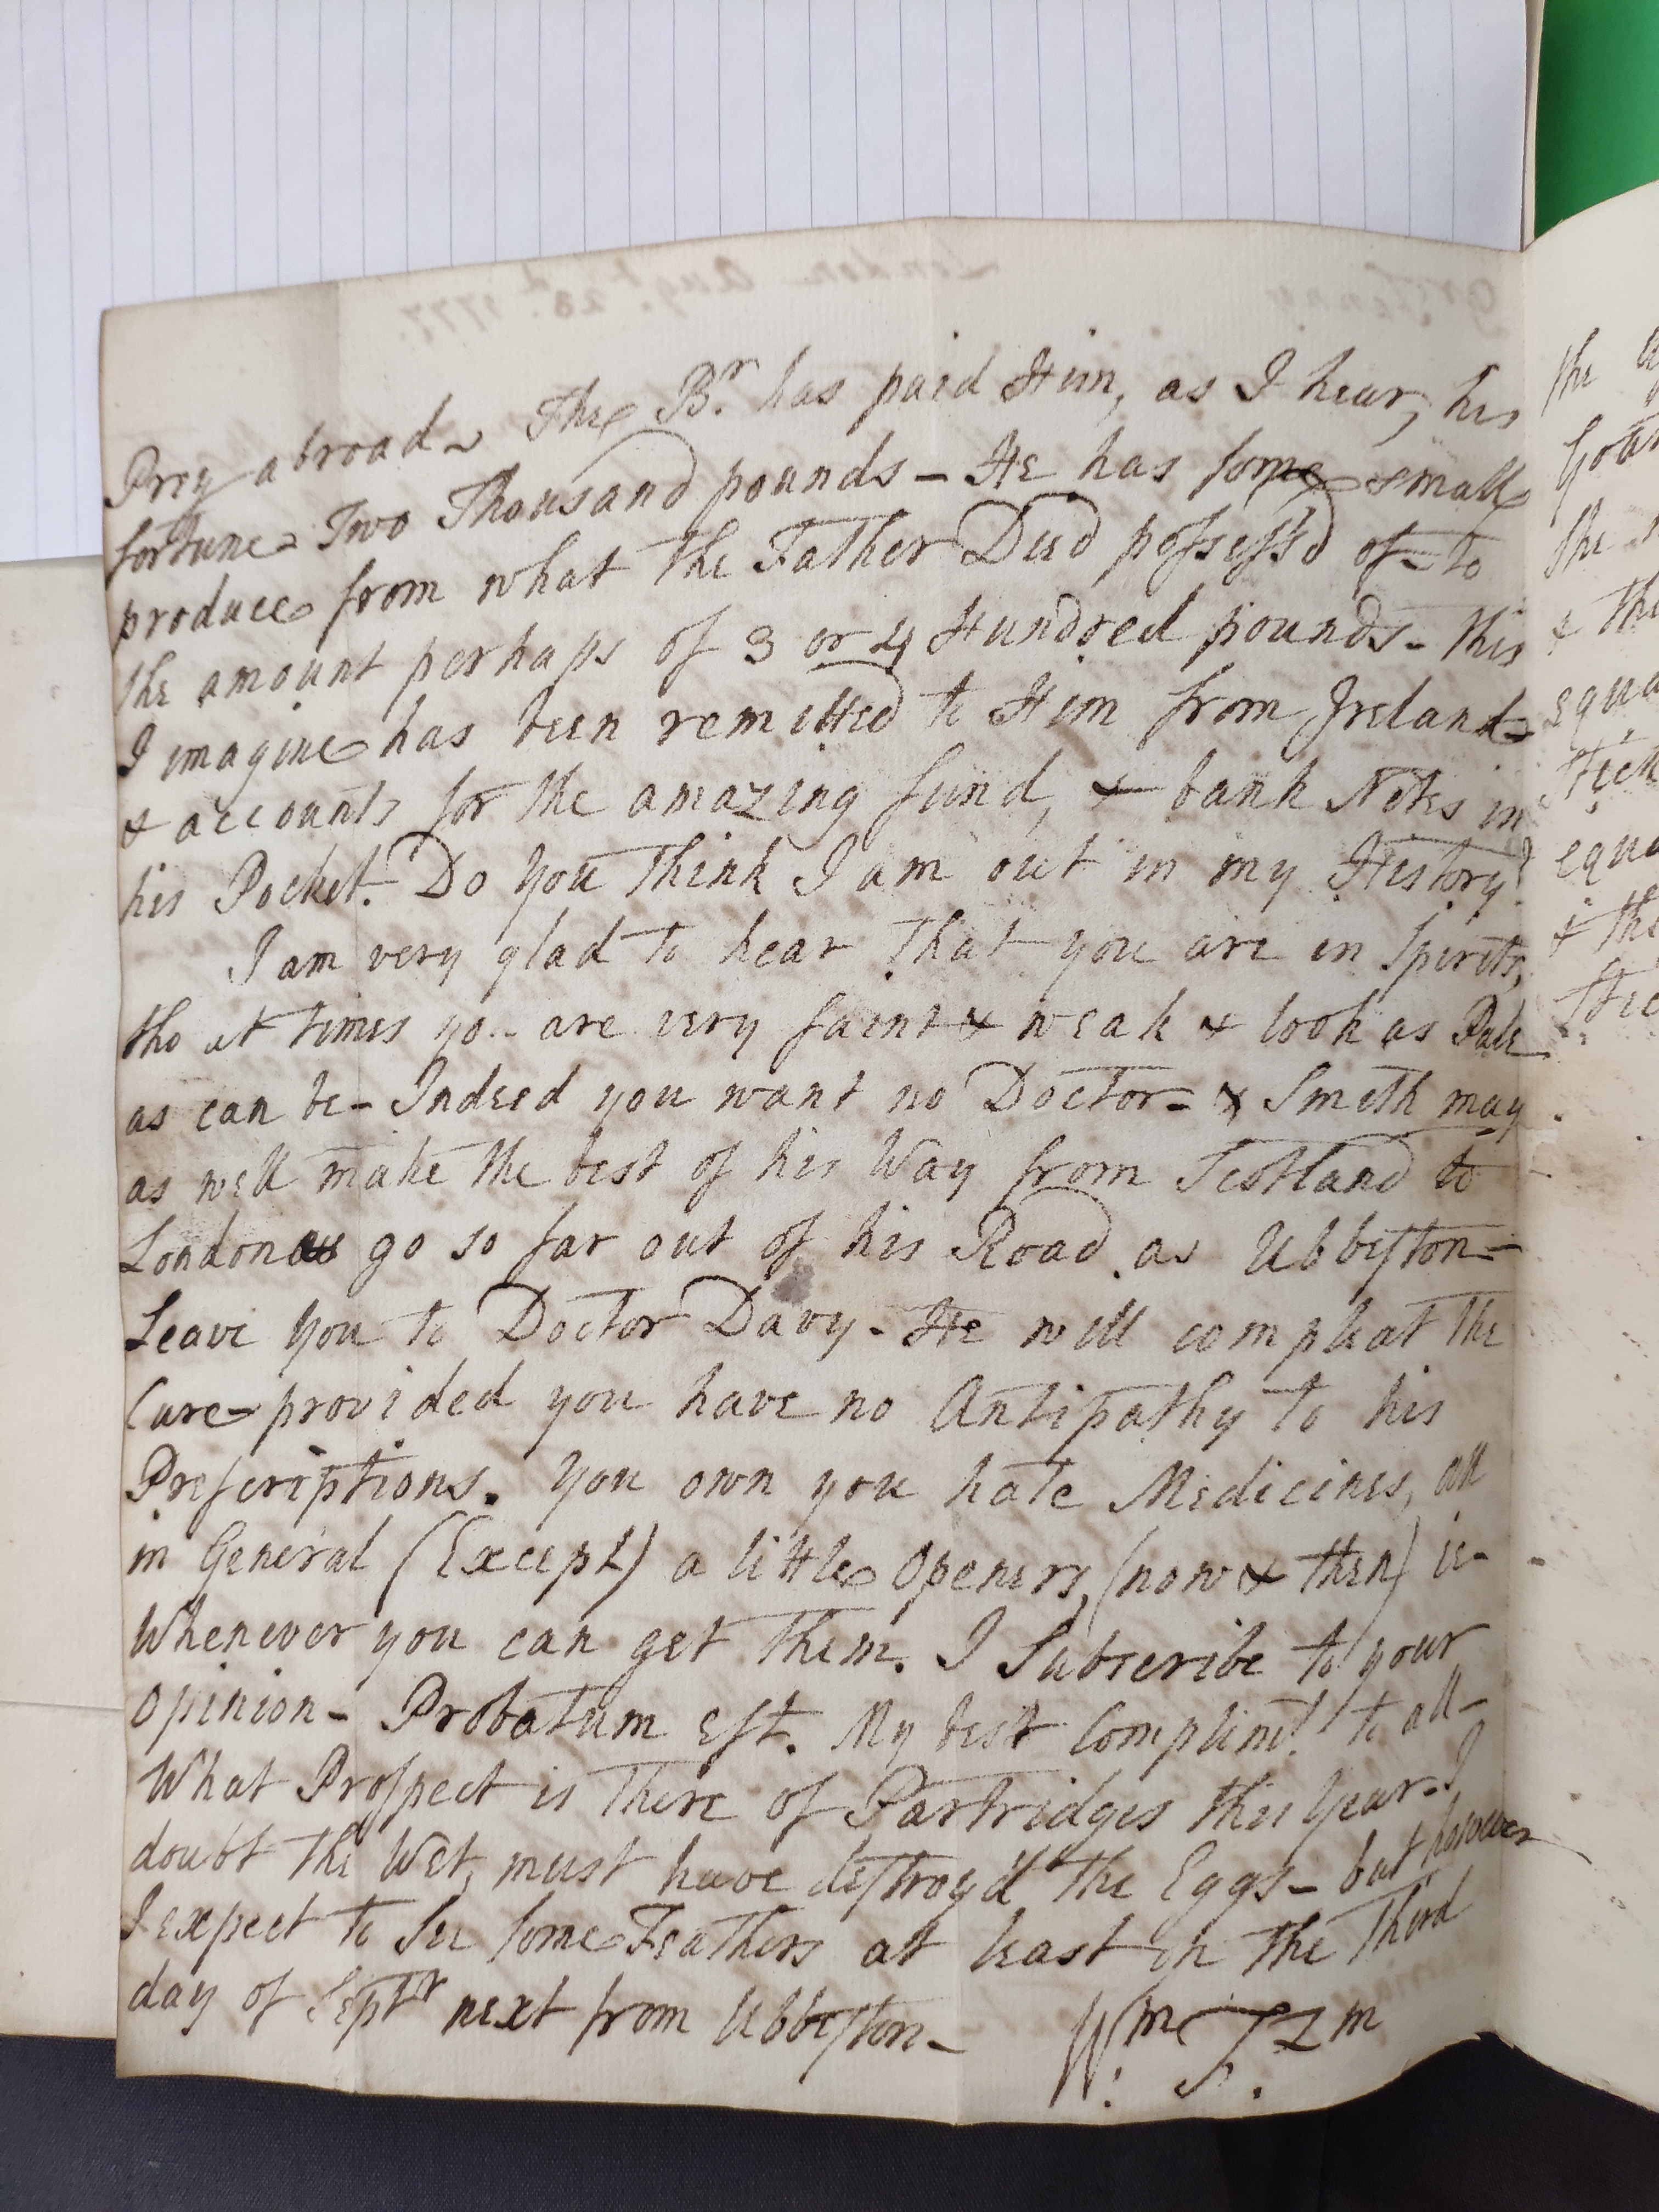 Prey abroad - The Br. has paid Him, as I hear, his
fortune - Two Thousand pounds - He has some small
produce from what the Father Died possess'd of - to
the amount perhaps of 3 or 4 Hundred pounds - this
I imagine has been remitted to Him from Ireland -
& accounts for the amazing fund, & bank Notes in
his Pocket. Do you think I am out in my History?
I am very glad to hear that you are in Spirits,
tho at times yo.. are very faint & weak & look as Pale
as can be - Indeed you want no Doctor - & Smith may
as well make the best of his Way from Scotland to
London as go so far out of his Road as Ubbeston -
Leave you to Doctor Davy - He will compleat the
Cure - provided you have no Antipathy to his
Prescriptions. You own you hate Medicines, all
in General (Except) a little Openers, (now & then) ie -
Whenever you can get them. I Subscribe to your
Opinion - Probatum est. My best Complimts. to all -
What Prospect is there of Partridges this Year - I
doubt the Wet, must have destroy'd the Eggs - but however
I expect to See some Feathers at least on the Third
day of Septr next from Ubbeston -
Wm.
London Augt. 23d. 1777.
the
&
equa
equa
& the